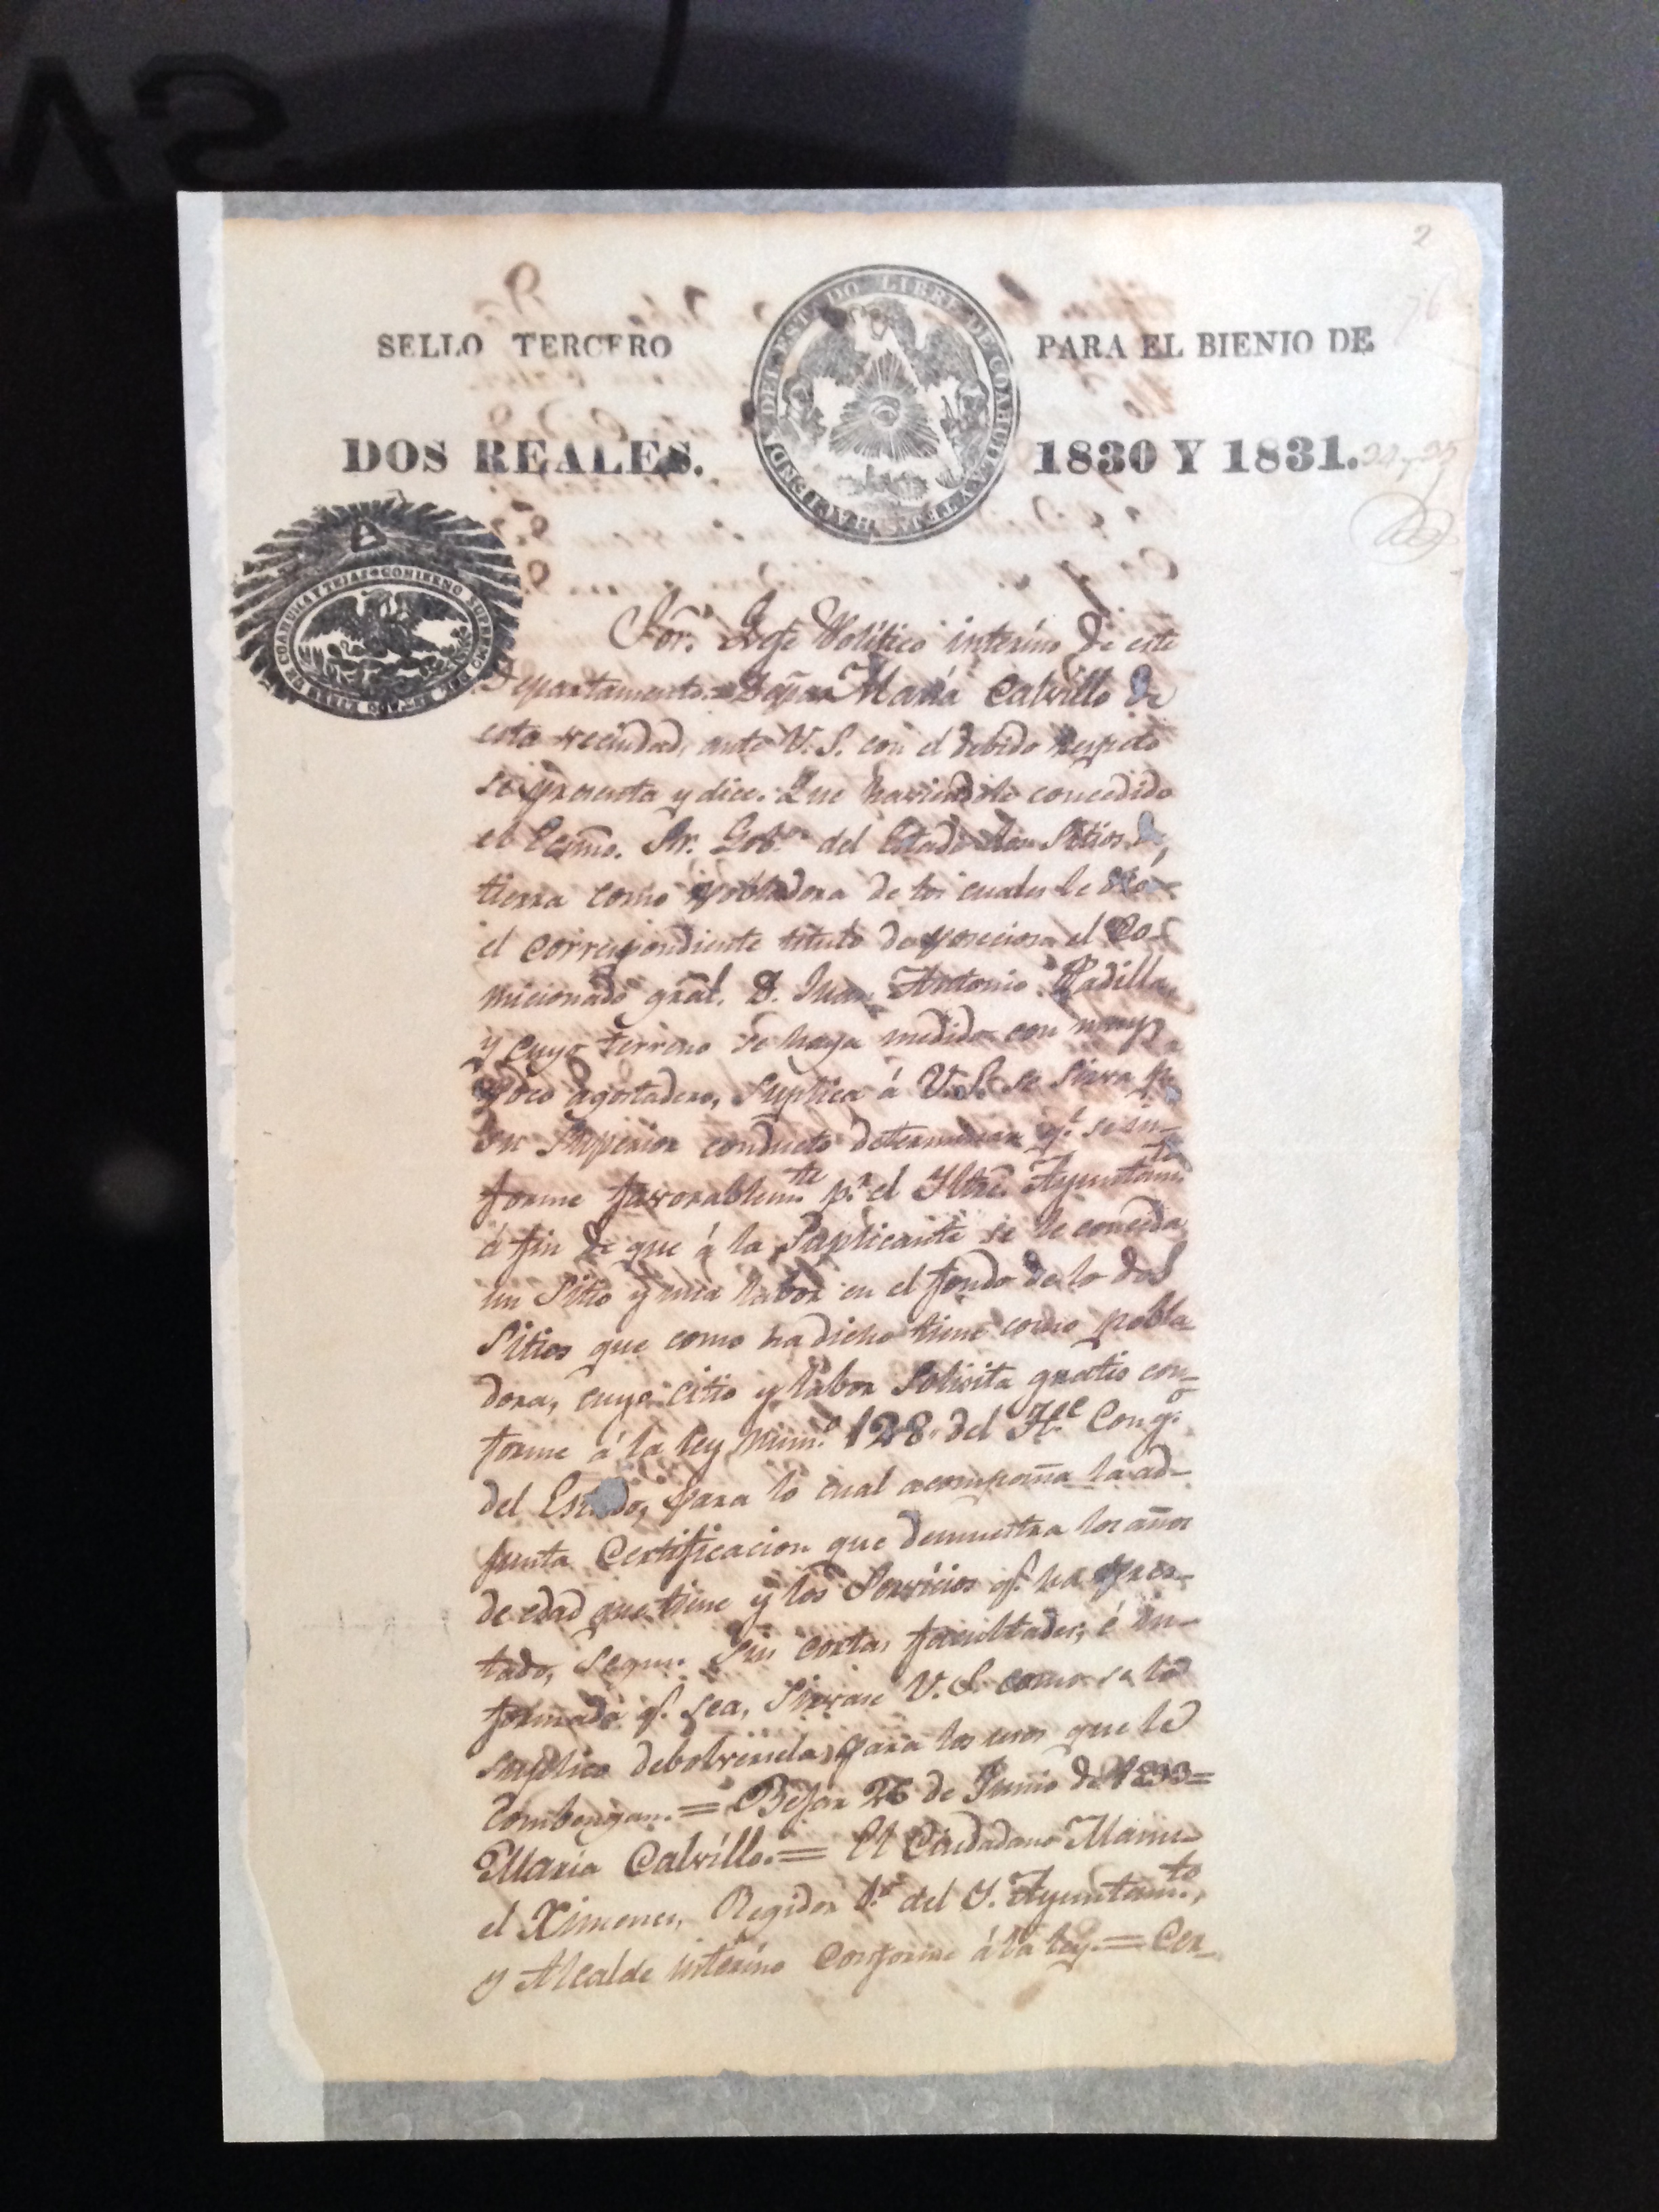 2
SELLO TERCERO
PARA EL BIENIO DE
DOS REALES.
1830 Y 1831.
HACIENDA DEL ESTADO LIBRE DE COAHUILA Y TEJAS
GOBIERNO SUPREMO DEL ESTADO LIBRE DE COAHUILA Y TEJAS
Sor. Gefe Politico interino de este
Departamento. = Doña Maria Calvillo de
esta vecindad, ante V.S. con el debido respeto
se presenta y dice: Que haviendole concedido
el Ecsmo. Sr. Gobr. del Estado dos Sitios de
tierra como pobladora de los cuales le dió
el correspondiente titulo de posecion el Co-
micionado gral. D. Juan Antonio Padilla,
y cuyo terreno se haya medido con muy
poco agostadero, Suplica á V.S. se sirva pr.
su Superior conducto determinar qe. se in-
forme favorablemte. pr. el Iltre. Ayuntamto.
á fin de que á la Suplicante se le conceda
un Sitio y una labor en el fondo de lo dos
Sitios que como ha dicho tiene como pobla
dora, cuyo citio y labor Solisita gratis con-
forme á la ley Numo. 128. del He. Congo.
del Estado, para lo cual acompaña la ad-
junta Certificacion que demuestra los años
de edad que tiene y los Servicios q. ha pres-
tado, segun sus cortas facultades, é in-
formado q. sea, Sirvase V.S. como se lo
suplico debolversela para los usos que le
Combengan. = Bejar 26 de Junio de 1833 =
Maria Calvillo. = El Ciudadano Manu-
el Ximenes, Regidor 1º. del I. Ayuntamto.,
y Alcalde interino Conforme á la ley. = Cer-